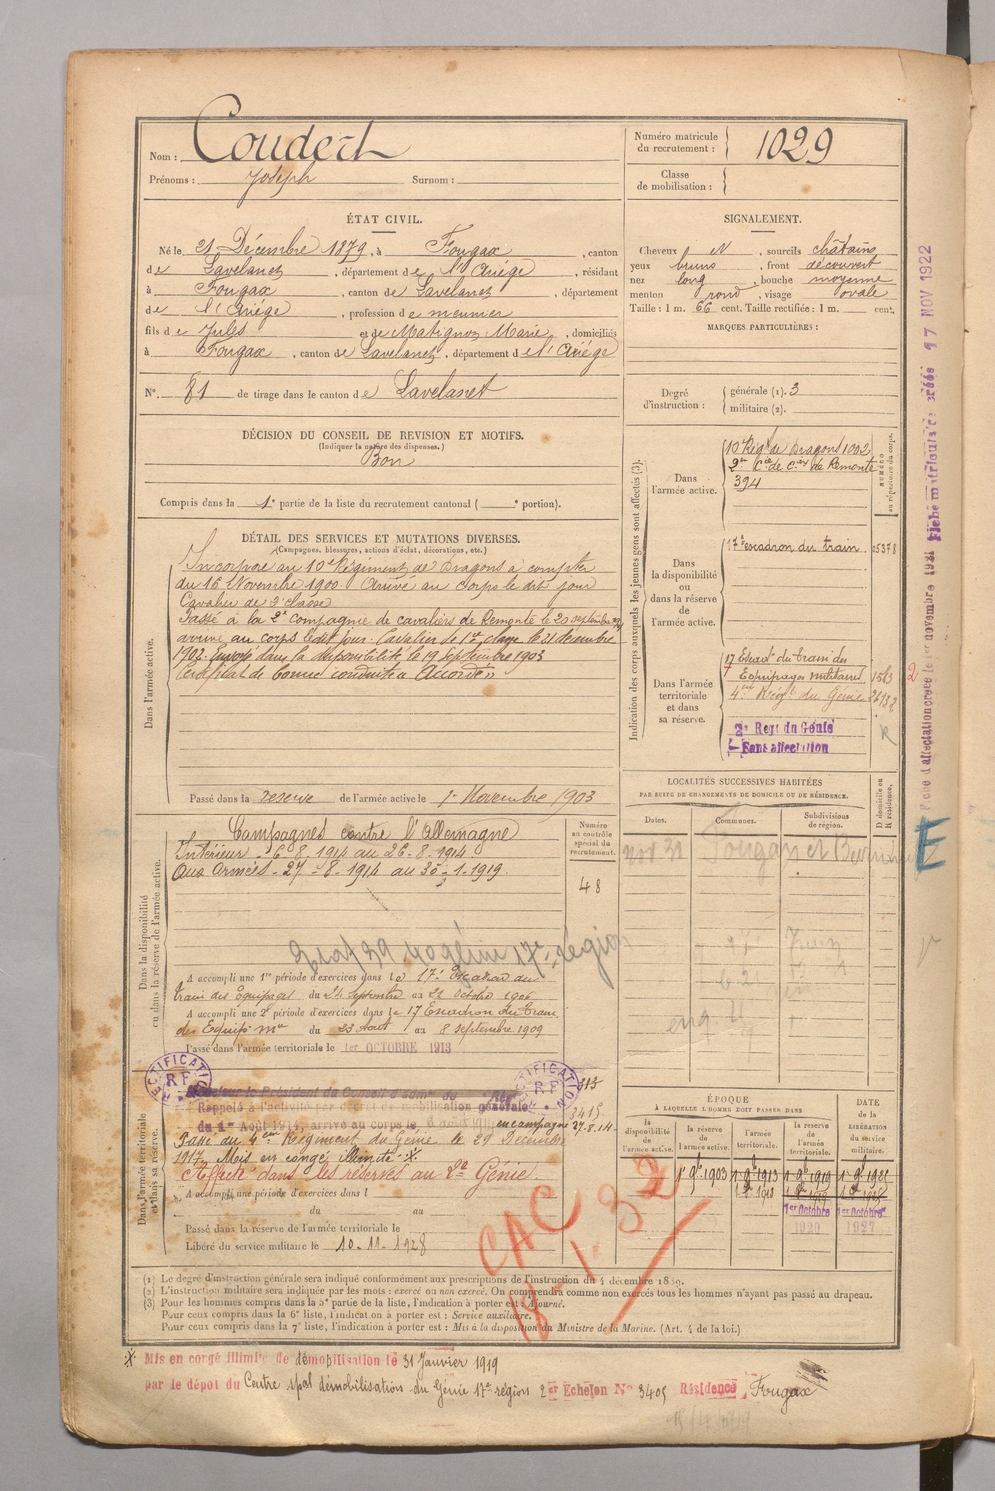 Nom : Coudert
Prénoms : Joseph Surnom :
Numéro matricule du recrutement : 1029
Classe de mobilisation :
ÉTAT CIVIL.
Né le 21 Décembre 1879, à Fougax, canton
de Lavelanet, département de l'Ariège, résidant
à Fougax, canton de Lavelanet, département
de l'Ariège, profession de meunier
fils de Jules et de Matignon Marie, domiciliés
à Fougax, canton de Lavelanet, département de l'Ariège
N° 81 de tirage dans le canton de Lavelanet
SIGNALEMENT.
Cheveux N, sourcils châtains
yeux bruns, front découvert
nez long, bouche moyenne
menton rond, visage ovale
Taille : 1 m. 66 cent. Taille rectifiée : 1 m. cent.
MARQUES PARTICULIÈRES :
Degré d'instruction : générale (1). 3
militaire (2).
DÉCISION DU CONSEIL DE REVISION ET MOTIFS.
(Indiquer la nature des dispenses.)
Bon
Compris dans la 1e partie de la liste du recrutement cantonal ( e portion).
DÉTAIL DES SERVICES ET MUTATIONS DIVERSES.
(Campagnes, blessures, actions d'éclat, décorations, etc.)
Dans l'armée active.
Incorporé au 10e Régiment de Dragons à compter
du 16 Novembre 1900 Arrivé au Corps le dit jour
Cavalier de 2e classe
Passé à la 2e compagnie de cavaliers de Remonte le 20 septembre
arrivé au corps le dit jour. Cavalier de 1re classe le 21 décembre
1902. Envoyé dans la disponibilité le 19 septembre 1903
Certificat de bonne conduite "Accordé"
Passé dans la réserve de l'armée active le 1er Novembre 1903
Indication des corps auxquels les jeunes gens sont affectés (3).
NUMÉRO au répertoire du corps.
Dans l'armée active.
10 Régt de Dragons 1002
2e Cie de Cers de Remonte
394
Dans la disponibilité ou dans la réserve de l'armée active.
17e escadron du train. 05378
Dans l'armée territoriale et dans sa réserve.
17 Escad. du train des
Equipages militaires 1563
4ème Régt du Génie
2e Regt du Génie
Sans affectation
LOCALITÉS SUCCESSIVES HABITÉES
PAR SUITE DE CHANGEMENTS DE DOMICILE OU DE RÉSIDENCE.
Dates. Communes. Subdivisions de région. D domicile ou R résidence.
Fougax et
Dans la disponibilité ou dans la réserve de l'armée active.
Numéro au contrôle spécial du recrutement.
48
Campagnes contre l'Allemagne
Intérieur - 6-8-1914 au 26-8-1914.
Aux Armées - 27-8-1914 au 30-1-1919.
17e région
A accompli une 1re période d'exercices dans le 17e Escadron du
train des Equipages du 24 Septembre au 21 octobre 1906
A accompli une 2e période d'exercices dans le 17 Escadron du train
des Equips mre du 23 Aout au 8 septembre 1909
Passé dans l'armée territoriale le 1er OCTOBRE 1913
RECTIFICATION RF
RECTIFICATION RF
Dans l'armée territoriale et dans sa réserve.
Rappelé à l'activité par décret de mobilisation générale
du 1er Août 1914, arrivé au corps le 6 août en campagne 27-8-14
Passé au 4ème Régiment du Génie le 29 Décembre
1917. Mis en congé illimité. X.
Affecté dans les réserves au 2e Génie.
A accompli une période d'exercices dans l
du au
Passé dans la réserve de l'armée territoriale le
Libéré du service militaire le 10-11-1928
ÉPOQUE
À LAQUELLE L'HOMME DOIT PASSER DANS
la disponibilité de l'armée active.
la réserve de l'armée active.
l'armée territoriale.
la réserve de l'armée territoriale.
DATE de la LIBÉRATION du service militaire.
1er Octobre 1920
1er Octobre 1927
CAC
(1) Le degré d'instruction générale sera indiqué conformément aux prescriptions de l'instruction du 4 décembre 1889.
(2) L'instruction militaire sera indiquée par les mots : exercé ou non exercé. On comprendra comme non exercés tous les hommes n'ayant pas passé au drapeau.
(3) Pour les hommes compris dans la 5e partie de la liste, l'indication à porter est : Ajourné.
Pour ceux compris dans la 6e liste, l'indication à porter est : Service auxiliaire.
Pour ceux compris dans la 7e liste, l'indication à porter est : Mis à la disposition du Ministre de la Marine. (Art. 4 de la loi.)
X Mis en congé illimité de démobilisation le 31 Janvier 1919
par le dépôt du Centre spal démobilisations du Génie 17e région 2e Echelon N° 3405 Résidence Fougax